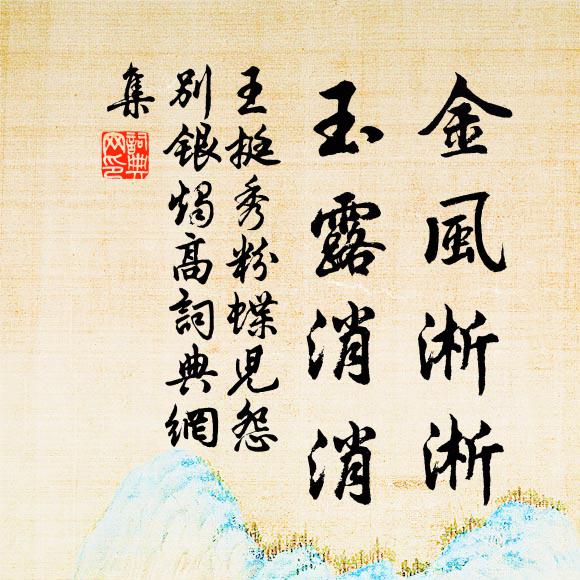 金風淅淅
玉露消消
王挺秀粉蝶兒怨
別銀燭高詞典網
集
詞典
网印